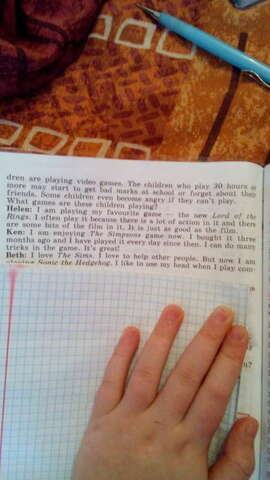 dren are playing video games. The children who play 30 hours or
more may start to get bad marks at school or forget about their
friends. Some children even become angry if they can't play.
What games are these children playing?
Helen: I am playing my favourite game — the new Lord of the
Rings. I often play it because there is a lot of action in it and there
are some bits of the film in it. It is just as good as the film.
Ken: I am enjoying The Simpsons game now. I bought it three
months ago and I have played it every day since then. I can do many
tricks in the game. It's great!
Beth: I love The Sims. I love to help other people. But now I am
playing Sonic the Hedgehog. I like to use my head when I play com-